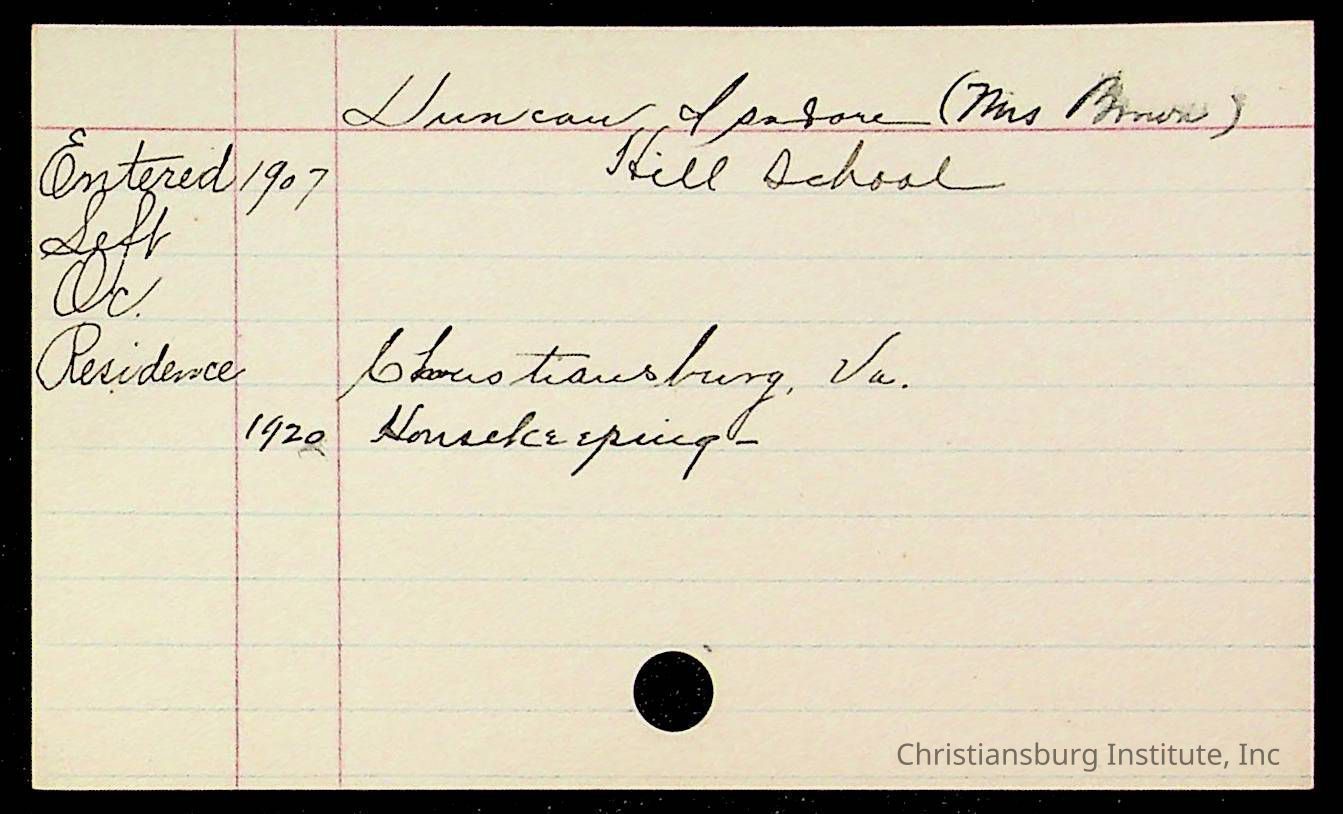 Duncan Isadore (Mrs Brown)
Entered 1907 Hill School
Left
Oc.
Residence Christiansburg, Va.
1920 Housekeeping-
Christiansburg Institute, Inc